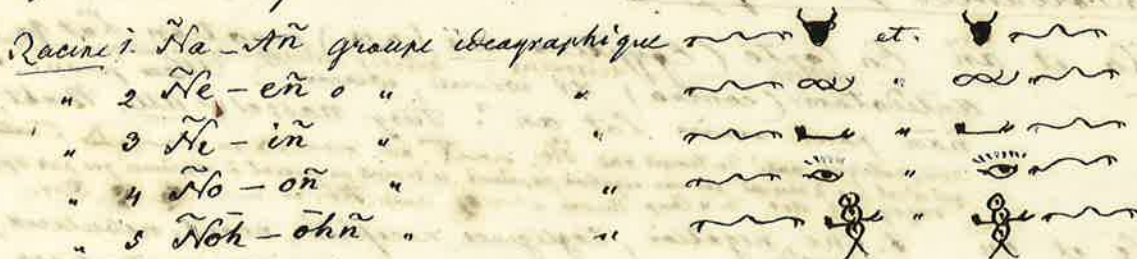 Racine 1. Ña - Añ groupe ideographique et.
" 2 Ñe - eñ o " " "
" 3 Ñi - iñ " " "
" 4 Ño - oñ " " "
" 5 Ñōh - ōhñ " " "